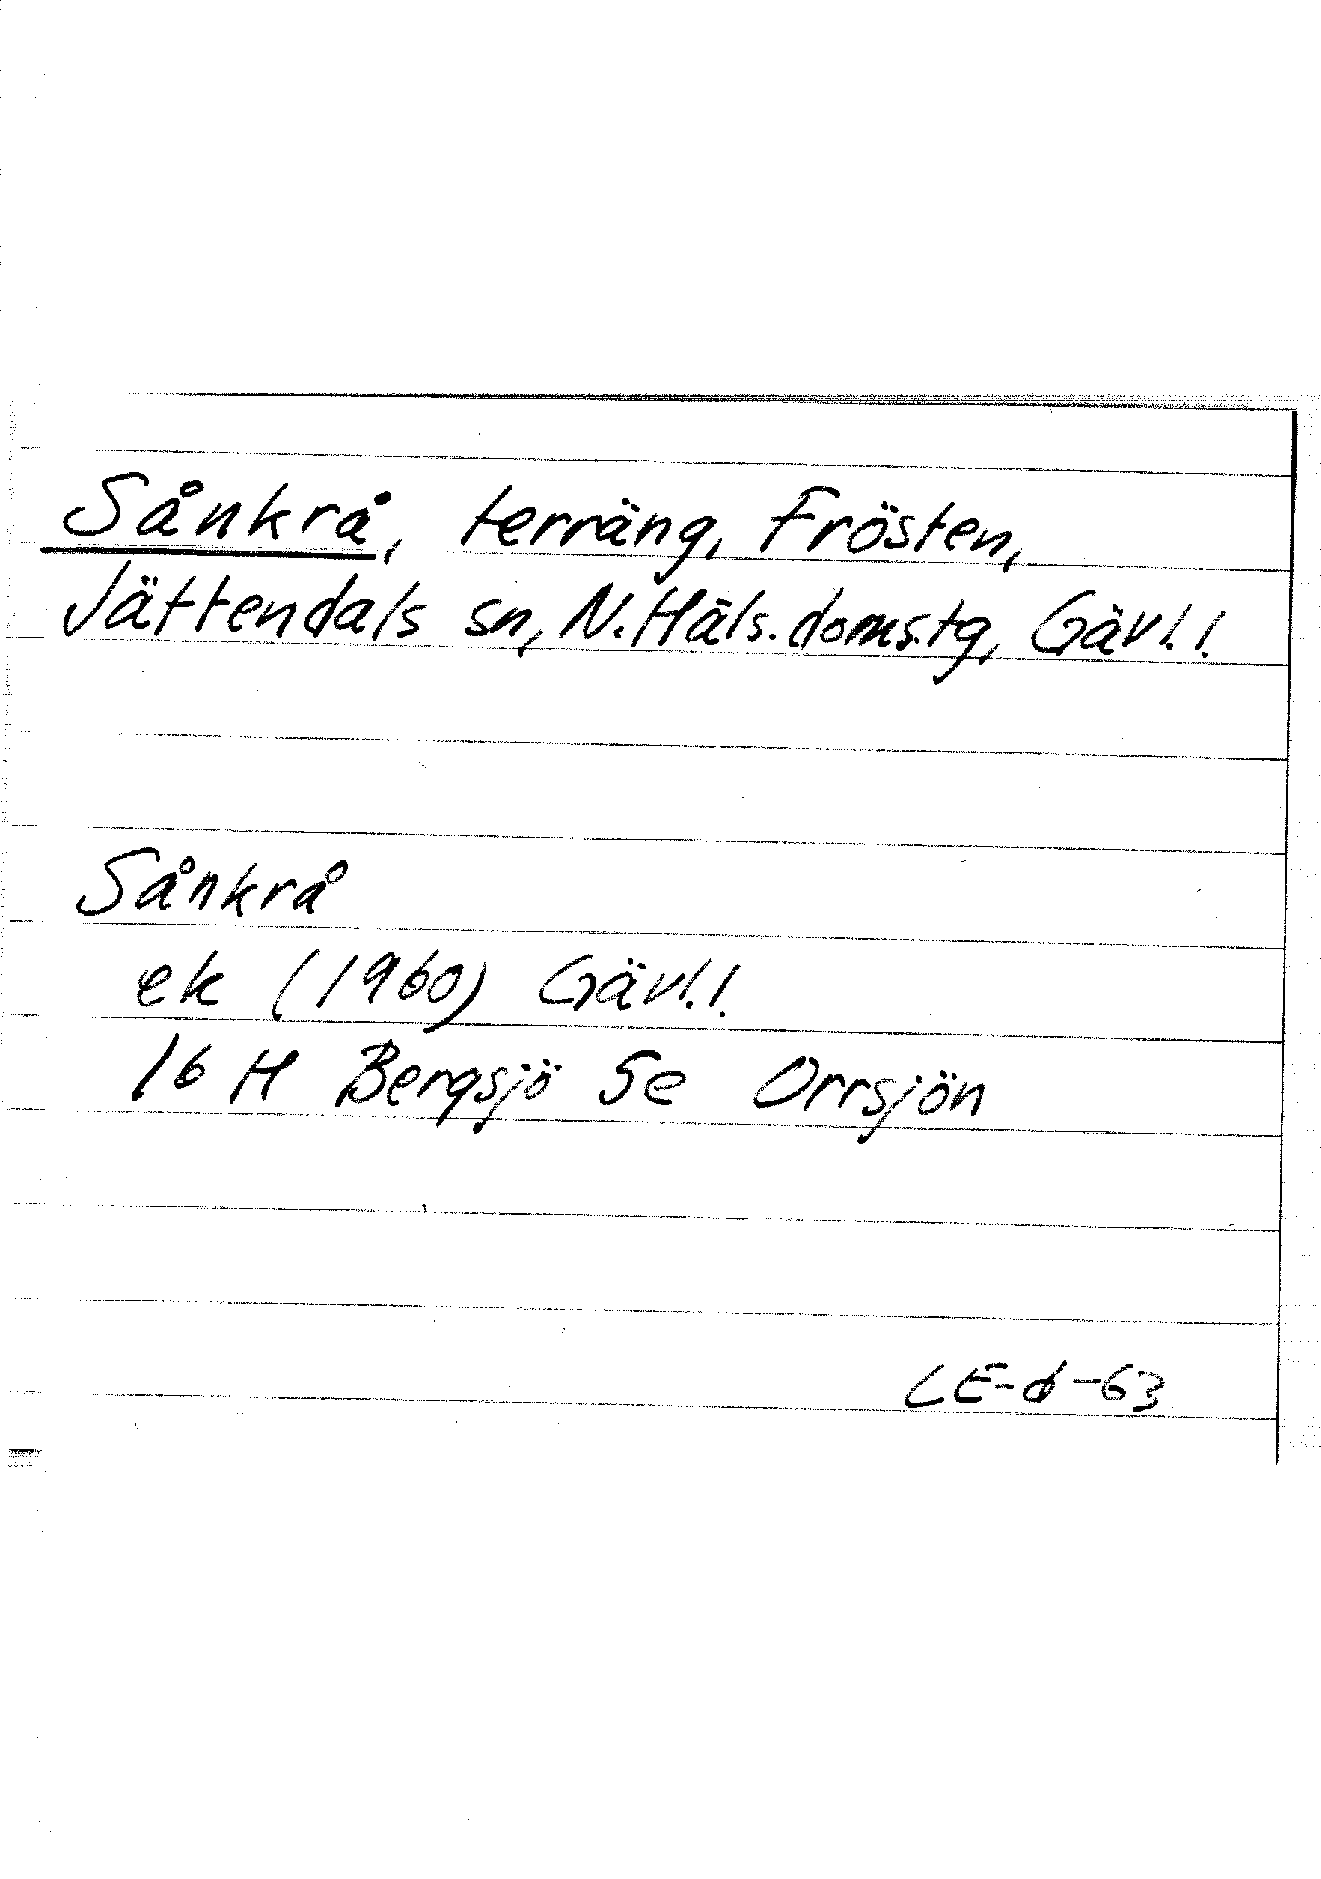 Sånkrå, terräng, Frösten,
Jättendals sn, N. Häls. domstg, Gävl. l.
Sånkrå
ek (1960) Gävl. l.
16 H Bergsjö Se Orrsjön